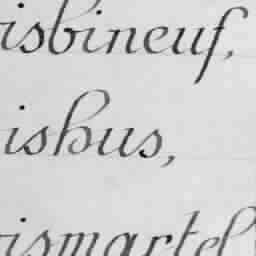 isbineuf,
ishus,
ismartel